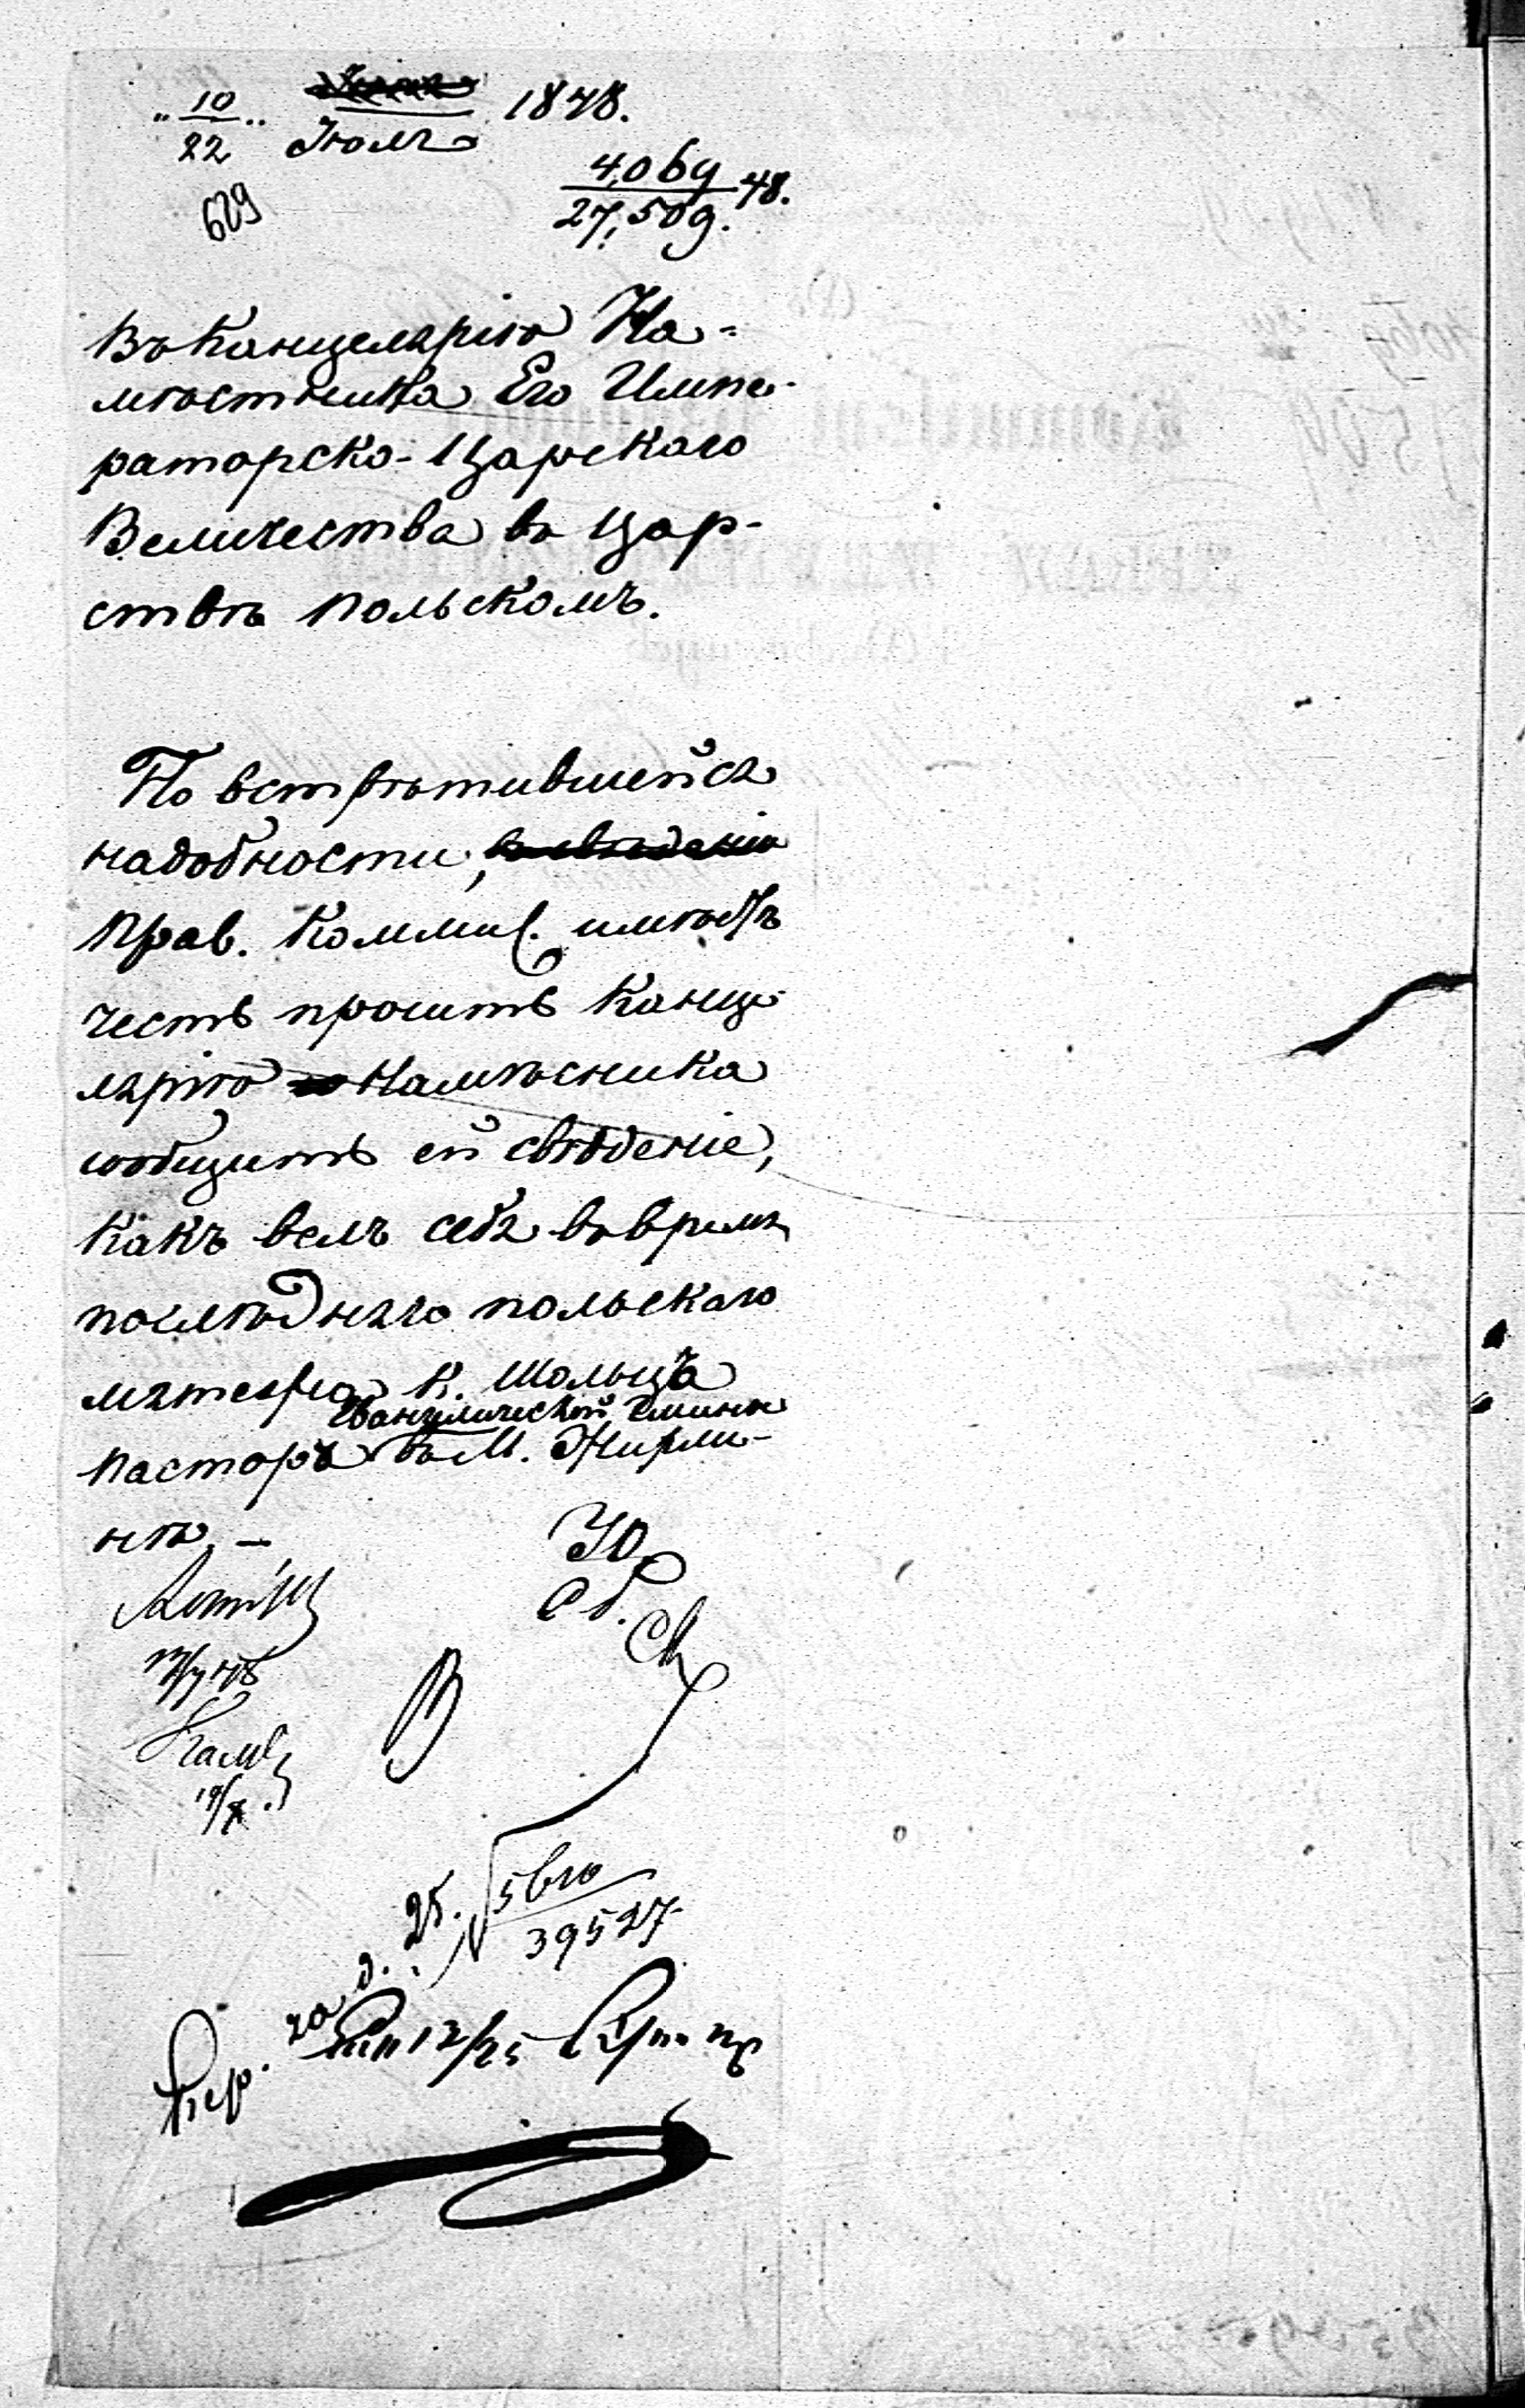 "10/22" Іюля 1848.
4,069/27,509. 48.
629
Въ Канцелярію На-
мѣстника Его Импе-
раторско-Царскаго
Величества въ Цар-
ствѣ Польскомъ.
По встрѣтившейся
надобности,
Прав. Коммис. имѣетъ
честь просить Канце-
лярію Намѣсника
сообщить ей свѣденіе,
какъ велъ себя въ время
послѣдняго польскаго
мятежа К. Шольцъ
Евангелической Гмины
Пасторъ въ М. Жирми-
нѣ. –
Ю.
Сб.
В
25.
39527
12/25